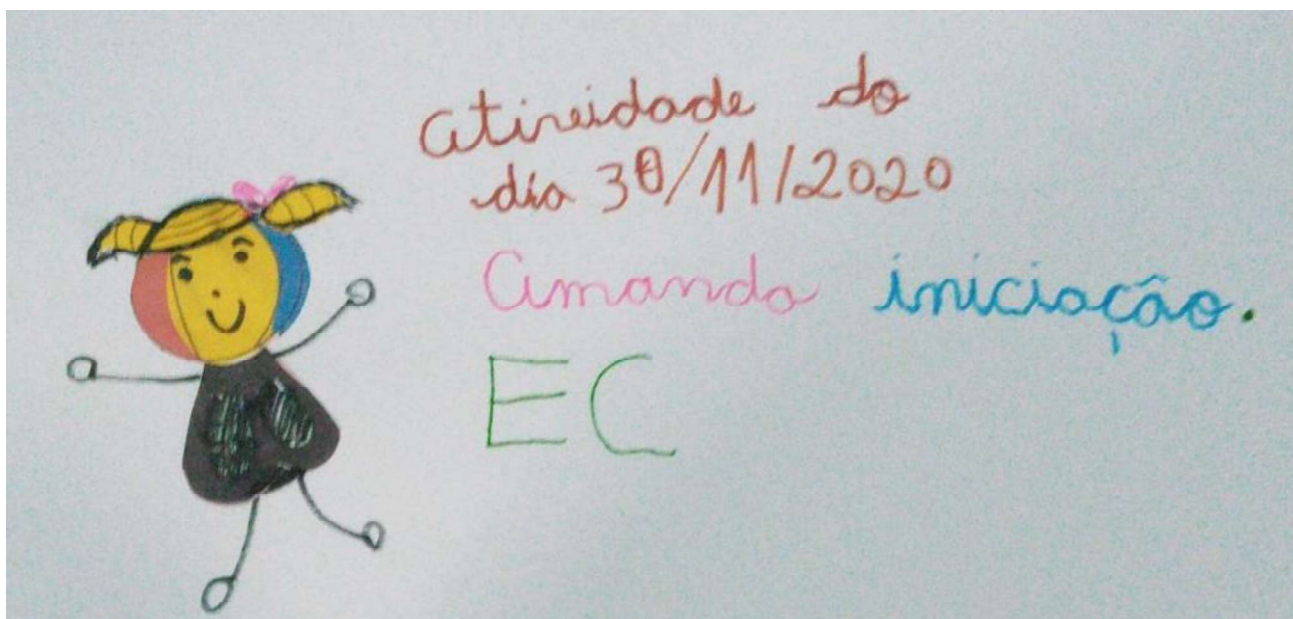 Atividade do
dia 30/11/2020
Amanda iniciação.
EC